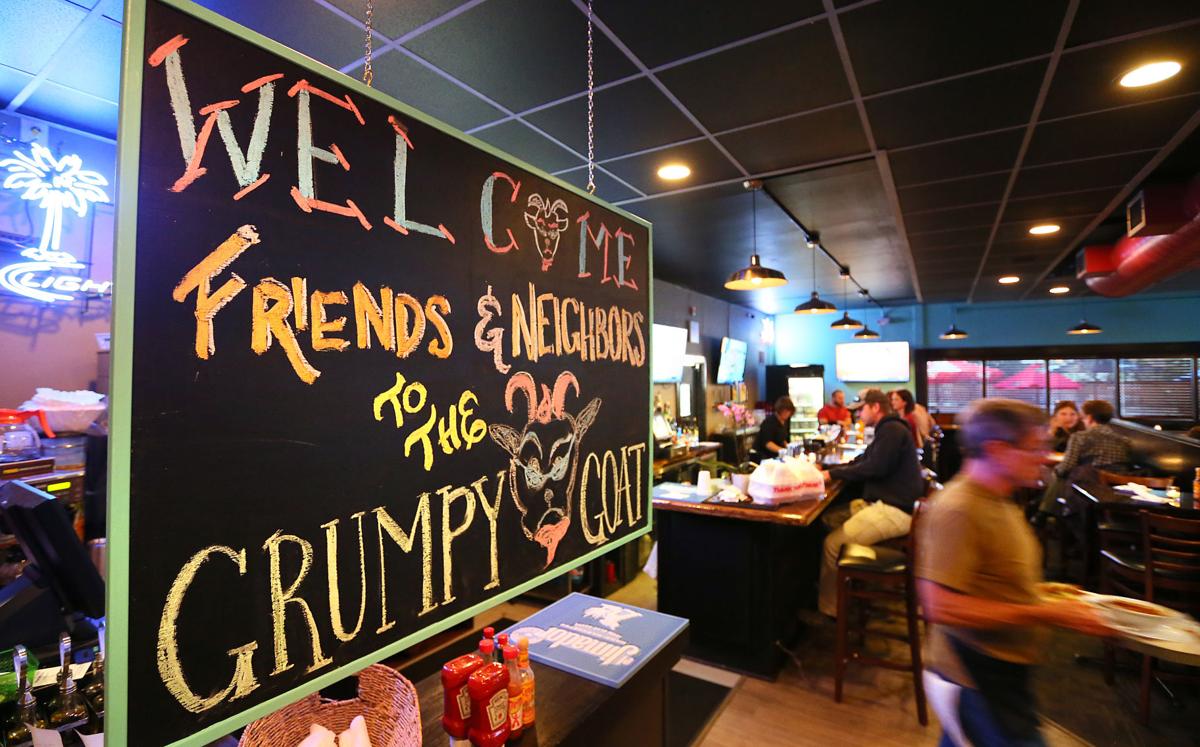 WELCOME
FRIENDS & NEIGHBORS
TO THE
GRUMPY GOAT
LIGHT
Jinado